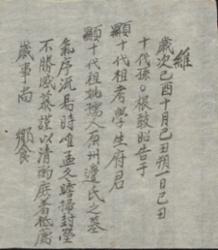 維
歲次己酉十月己丑朔一日己丑
十代孫○根敢昭告于
顯十代祖考學生府君
顯十代祖妣孺人原州邊氏之墓
氣序流易時惟孟冬瞻掃封塋
不勝感慕謹以清酌庶羞祗薦
歲事尚 饗